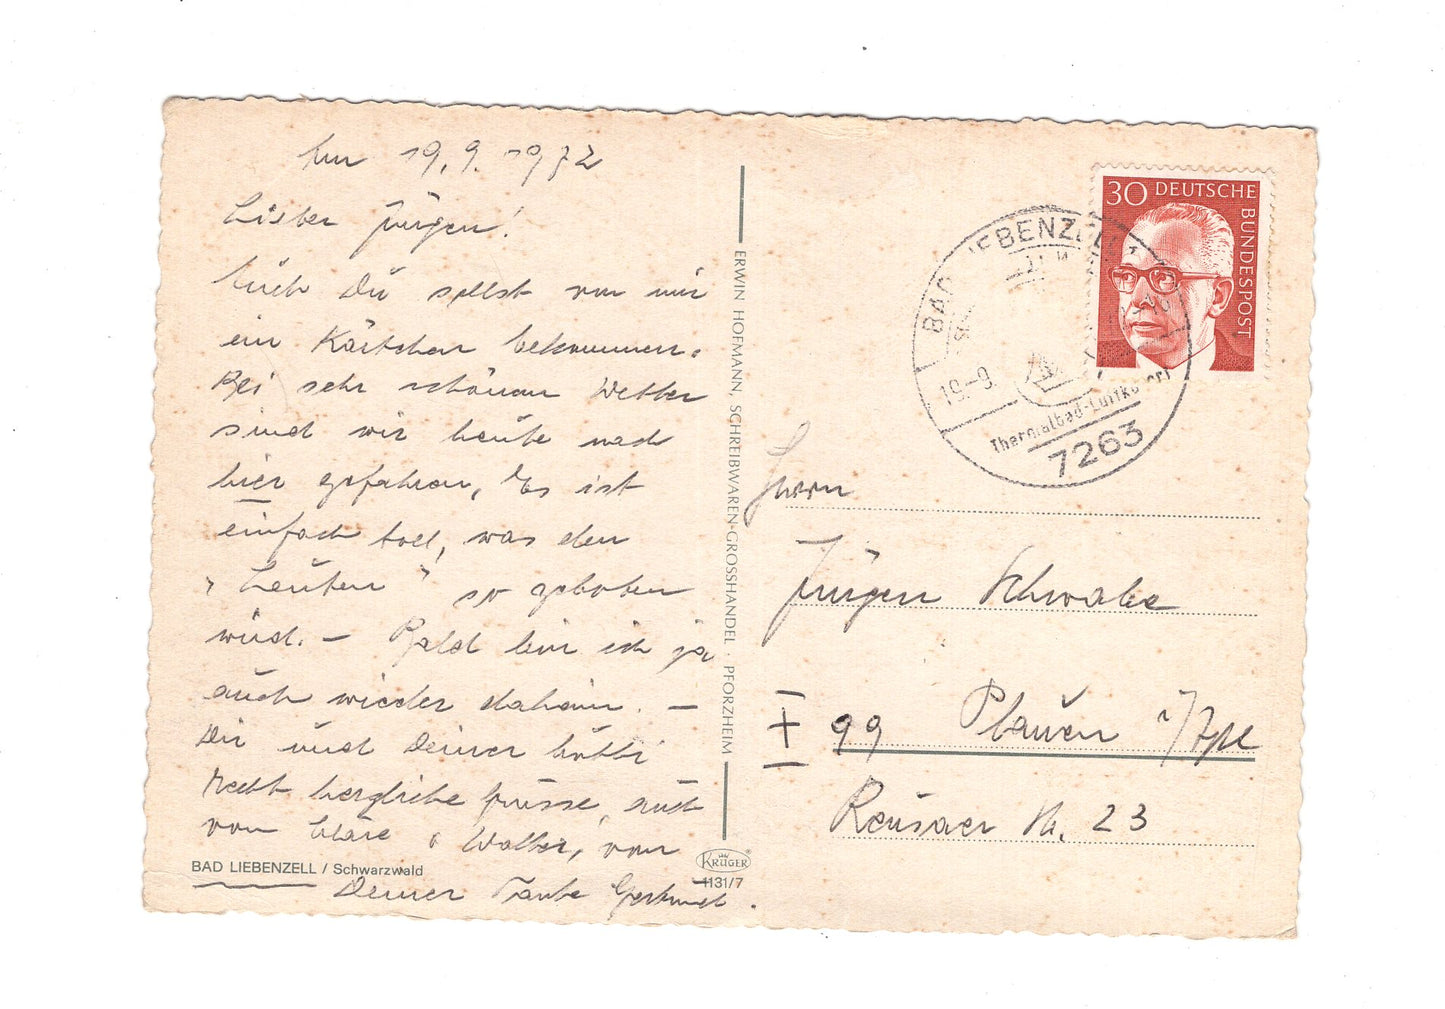 Am 19.9.1972
Lieber Jürgen!
Auch Du sollst von mir
ein Kärtchen bekommen.
Bei sehr schönem Wetter
sind wir heute nach
hier gefahren, Es ist
einfach toll, was den
„Leuten" so geboten
wird. – Bald bin ich ja
auch wieder daheim. –
Dir und Deiner Mutti
recht herzliche Grüsse, auch
von Cläre u Walter, von
Deiner Tante Gertrud.
BAD LIEBENZELL / Schwarzwald
ERWIN HOFMANN, SCHREIBWAREN-GROSSHANDEL · PFORZHEIM
KRÜGER
1131/7
30 DEUTSCHE BUNDESPOST
BAD LIEBENZELL
19.-9.
Thermalbad-Luftkurort
7263
Herrn
Jürgen Schwabe
X 99 Plauen i/Vgtl
Reusaer Str. 23